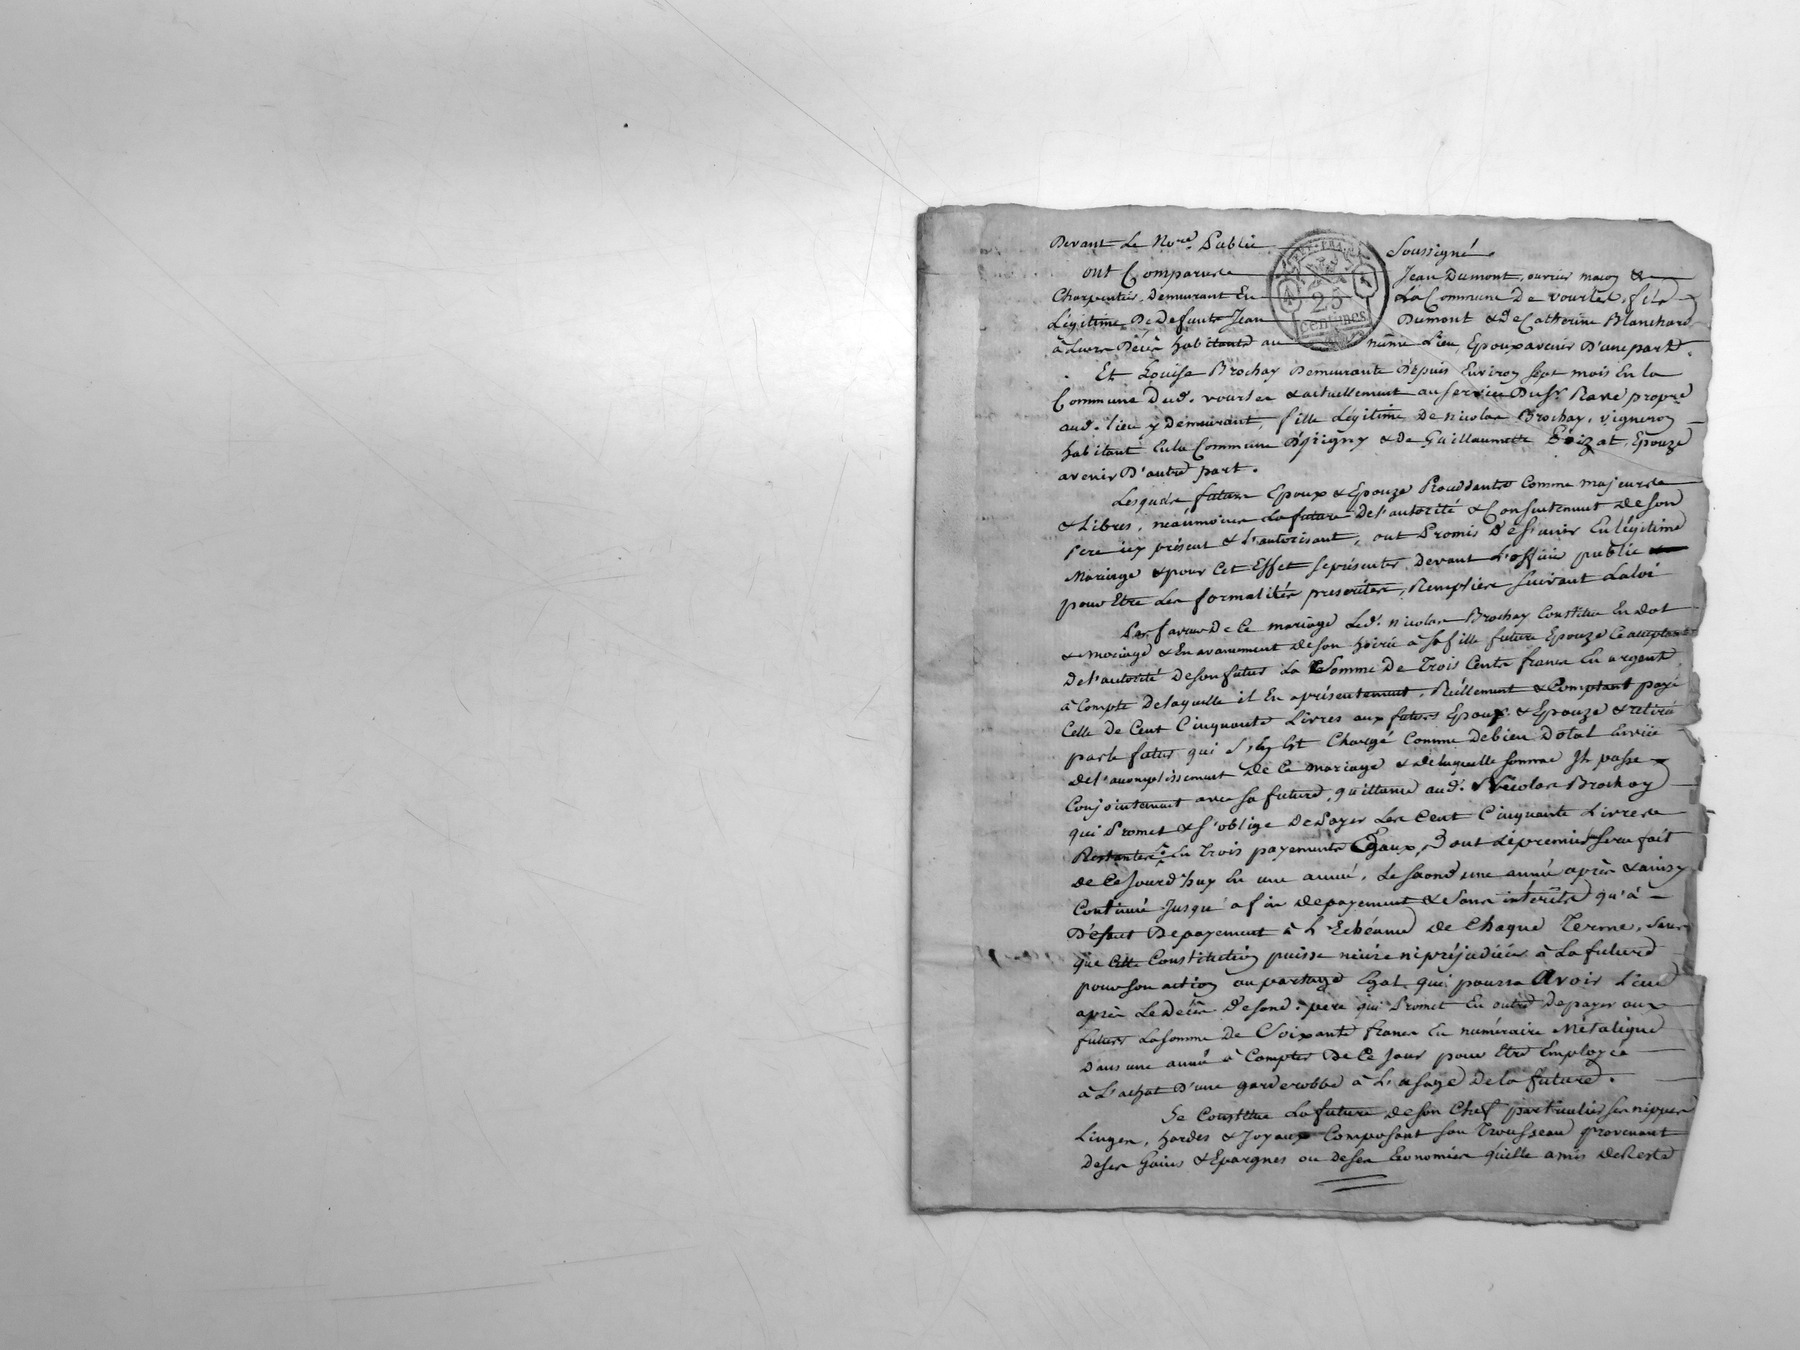 Devant Le No.re Public Soussigné
ont Comparus Jean Dumont, ouvrier maçon &
Charpentier, Demeurant En La Commune De vourles, fils
Légitime De Defunts Jean Dumont & De Catherine Blanchard
à Leurs Décès habitants au même Lieu, Epoux avenir D'une part.
Et Louise Brochay Demeurante Depuis Environ sept mois En la
Commune Dud. vourles & actuellement au service Du Sr. Ravé propre
aud. lieu y Demeurant, fille Légitime De nicolas Brochay, vigneron
habitant En la Commune D'Irigny & de Guillaumette Boizat, Epouze
avenir D'autre part.
Lesquels futurs Epoux & Epouze Procédants Comme majeurs
& Libres, néanmoins La future De l'autorité & Consentement de son
Pere icy présent & L'autorisant, ont Promis De s'unir En légitime
Mariage & pour Cet Effet se présenter Devant L'office public
pour Etre Les formalités prescrites, Remplies suivant La loi
En faveur De Ce mariage Led. nicolas Brochay Constitue En dot
& mariage & En avancement de son hoirie à sa fille future Epouze Ce acceptant
De l'autorité De son futur La Somme De Trois Cents francs En argent
à Compte De laquelle il En a présentement, Réellement & Comptant payé
Celle de Cent Cinquante Livres aux futurs Epoux & Epouze & retiré
par le futur qui S'en Est Chargé Comme De bien Dotal
De l'accomplissement De Ce mariage & de laquelle somme Il passe
Conjointement avec sa future, quittance aud. Nicolas Brochay
qui Promet & s'oblige De Payer Les Cent Cinquante Livres
Restantes En Trois payements Egaux, Dont Le premier sera fait
de Ce Jourd'huy En une année, Le second une année après & ainsy
Continué Jusqu'a fin de payement & Sans intérêts qu'à
Défaut De payement à L'Echéance de Chaque Terme, sans
que Cette Constitution puisse nuire ni préjudicier à La future
pour son action au partage Egal qui pourra Avoir Lieu
après Le Décès De sond. père qui Promet En outre De payer aux
futurs La somme de Soixante francs En numéraire Métalique
Dans une année à Compter De Ce Jour pour Etre Employée
à L'achat D'une garderobbe à L'usage De la future.
Se Constitue La future de son Chef particulier ses nippes
Linges, hardes & Joyaux Composant son Trousseau provenant
De ses Gains & Epargnes ou De ses Economies qu'elle a mis De Reste
REP. FRA.
25
centimes